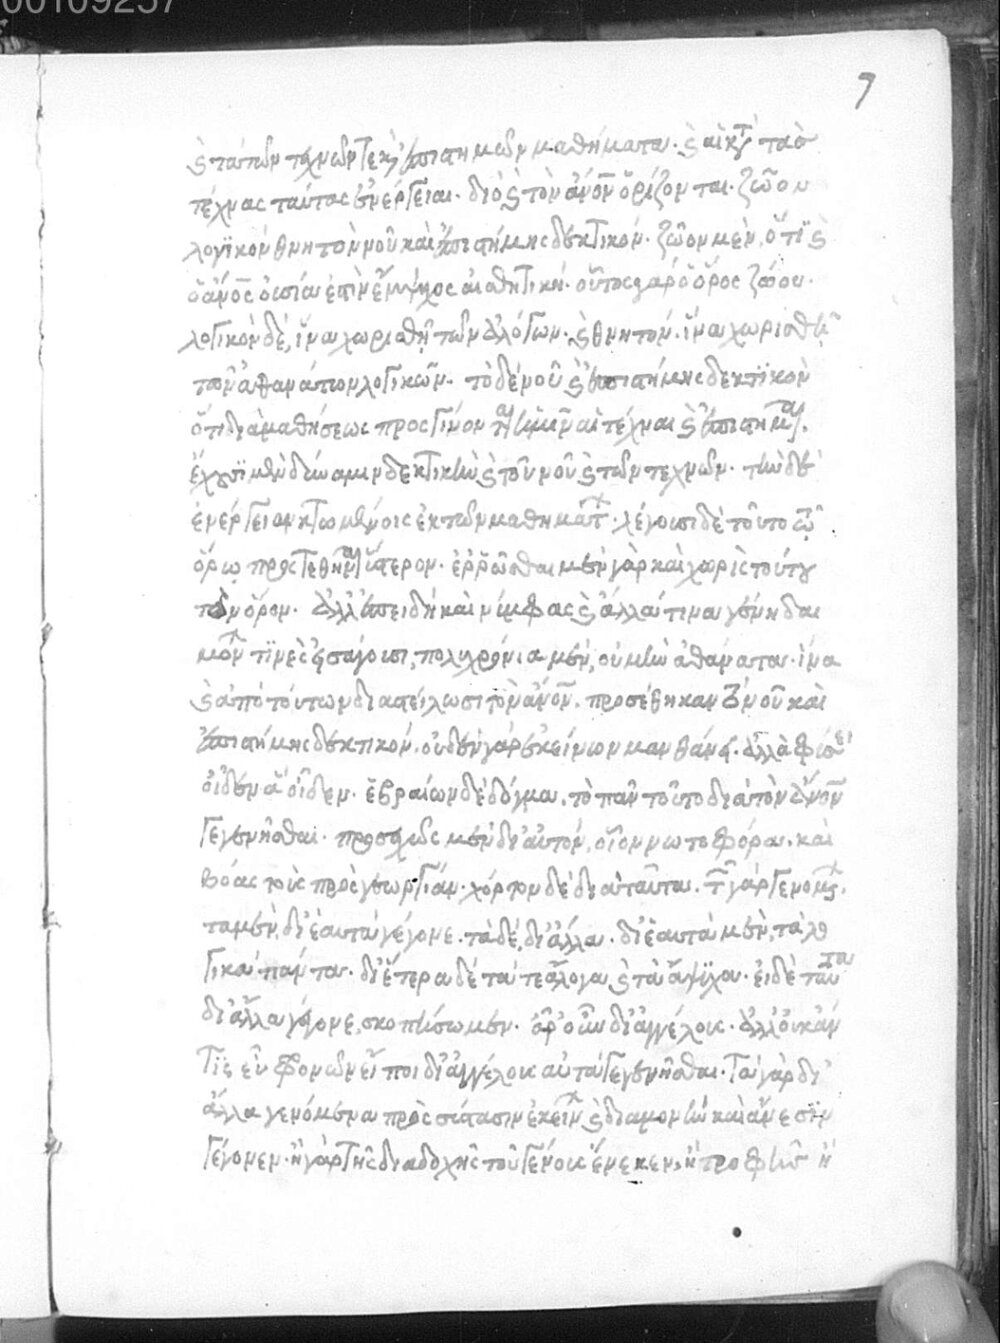 00109257
7
καὶ τὰ τῶν τεχνῶν τε καὶ ἐπιστημῶν μαθήματα· καὶ αἱ κατὰ τὰς
τέχνας ταύτας ἐνέργειαι· διὸ καὶ τὸν ἄνον ὁρίζονται· ζῶον
λογϊκὸν θνητὸν νοῦ καὶ ἐπιστήμης δεκτικόν· ζῶον μὲν, ὅτϊ καὶ
ὁ ἄνος οὐσία ἐστὶν ἔμψυχος αἰσθητική· οὗτος γὰρ ὁ ὅρος ζώου·
λογικὸν δέ, ἵνα χωρισθῆ τῶν ἀλόγων· καὶ θνητόν· ἵνα χωρισθῆ
τῶν ἀθανάτων λογικῶν· τὸ δέ νοῦ καὶ ἐπιστήμης δεκτϊκὸν
ὅτι διὰ μαθήσεως προσγίνονται ἡμῖν αἱ τέχναι καὶ ἐπιστῆμαι·
ἔχουσϊ μὲν δύναμιν δεκτικὴν καὶ τοῦ νοῦ καὶ τῶν τεχνῶν· τὴν δὲ
ἐνέργειαν κτωμένοις ἐκ τῶν μαθημάτ· λέγουσι δὲ τοῦτο τῶ
ὅρω προστεθῆναι ὕστερον· ἐρρῶσθαι μὲν γὰρ καὶ χωρὶς τούτου
τὸν ὅρον· ἀλλ' ἐπειδὴ καὶ νύμφας καὶ ἄλλα τινα γένη δαι
μόν τϊνὲς εἰσάγουσι, πολυχρόνια μέν, οὐ μὴν ἀθάνατα· ἵνα
καὶ ἀπὸ τούτων διαστείλωσι τὸν ἄνον, προσέθηκαν τὸ νοῦ καὶ
ἐπιστήμης δεκτικόν· οὐδὲν γὰρ ἐκείνων μανθάνει· ἀλλὰ φύσει
οἶδεν ἃ οἶδεν· ἑβραίων δὲ δόγμα, τὸ πᾶν τοῦτο διὰ τὸν ἄνον
γεγενῆσθαι· προσεχῶς μὲν δι' αὐτόν, οἷον νωτοφόρα, καὶ
βόας τοὺς πρὸς γεωργίαν· χόρτον δὲ διὰ ταῦτα· τῶν γὰρ γενομένων·
τὰ μὲν, δι' ἑαυτὰ γέγονε· τὰ δέ, δι' ἄλλα· δι' ἑαυτὰ μὲν, τὰ λο
γικὰ πάντα· δι' ἕτερα δὲ τά τε ἄλογα καὶ τὰ ἄψϋχα· εἰ δὲ ταῦτα
δι' ἄλλα γέγονε, σκοπήσωμεν· ἆρ' οὖν δι' ἀγγέλους· ἀλλ' οὐκ ἄν
τϊς εὖ φρονῶν εἴποι δι' ἀγγέλους αὐτὰ γεγενῆσθαι· τὰ γὰρ δι'
ἄλλα γενόμενα πρὸς σύστασιν ἐκείνων καὶ διαμονὴν καὶ ἄνεσϊν
γέγονεν· ἢ γὰρ τῆς διαδοχῆς τοῦ γένους ἕνεκεν, ἢ τροφῆς ἢ